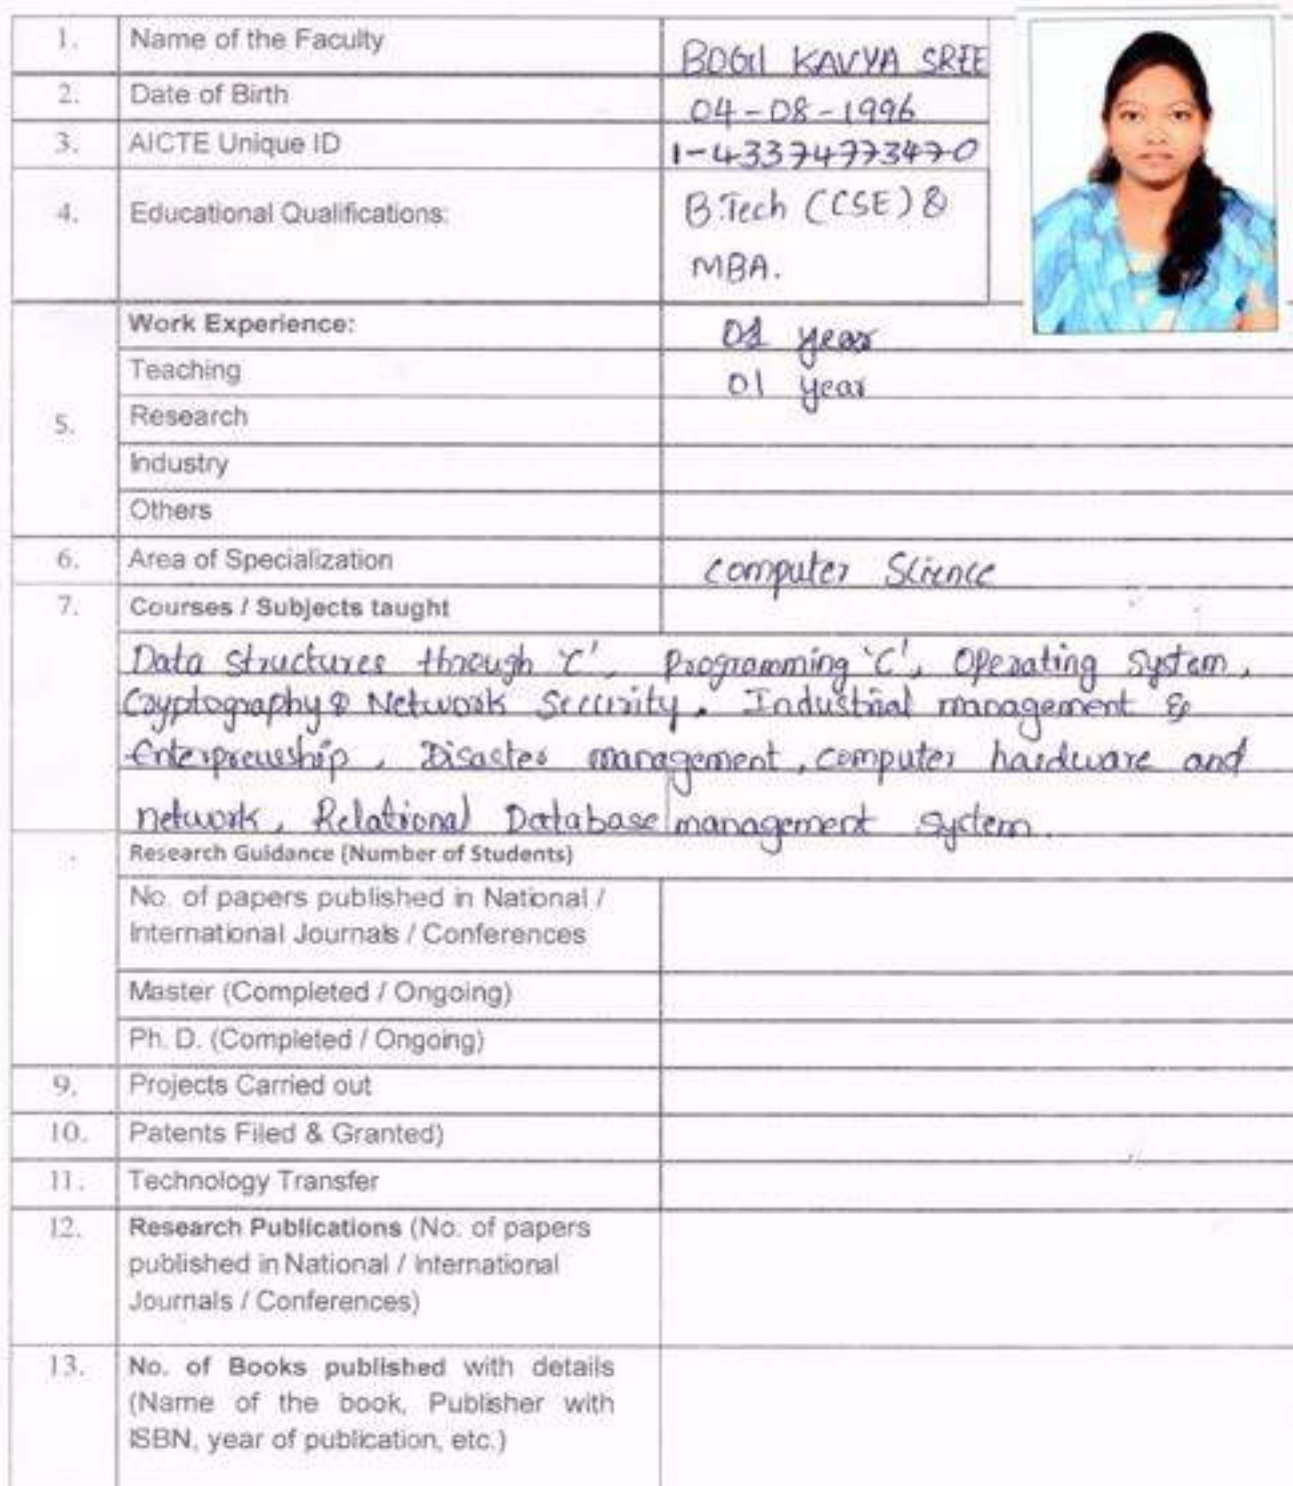 1. Name of the Faculty BOGII KAVYA SREE
2. Date of Birth 04-08-1996
3. AICTE Unique ID 1-43374773470
4. Educational Qualifications: B.Tech (CSE) &
MBA.
Work Experience: 01 year
Teaching 01 year
5. Research
Industry
Others
6. Area of Specialization Computer Science
7. Courses / Subjects taught
Data structures through 'C', Programming 'C', Operating System,
Cryptography & Network Security. Industrial management &
Enterpreuship, Disaster management, computer hardware and
network, Relational Database management system.
Research Guidance (Number of Students)
No. of papers published in National /
International Journals / Conferences
Master (Completed / Ongoing)
Ph. D. (Completed / Ongoing)
9. Projects Carried out
10. Patents Filed & Granted)
11. Technology Transfer
12. Research Publications (No. of papers
published in National / International
Journals / Conferences)
13. No. of Books published with details
(Name of the book, Publisher with
ISBN, year of publication, etc.)